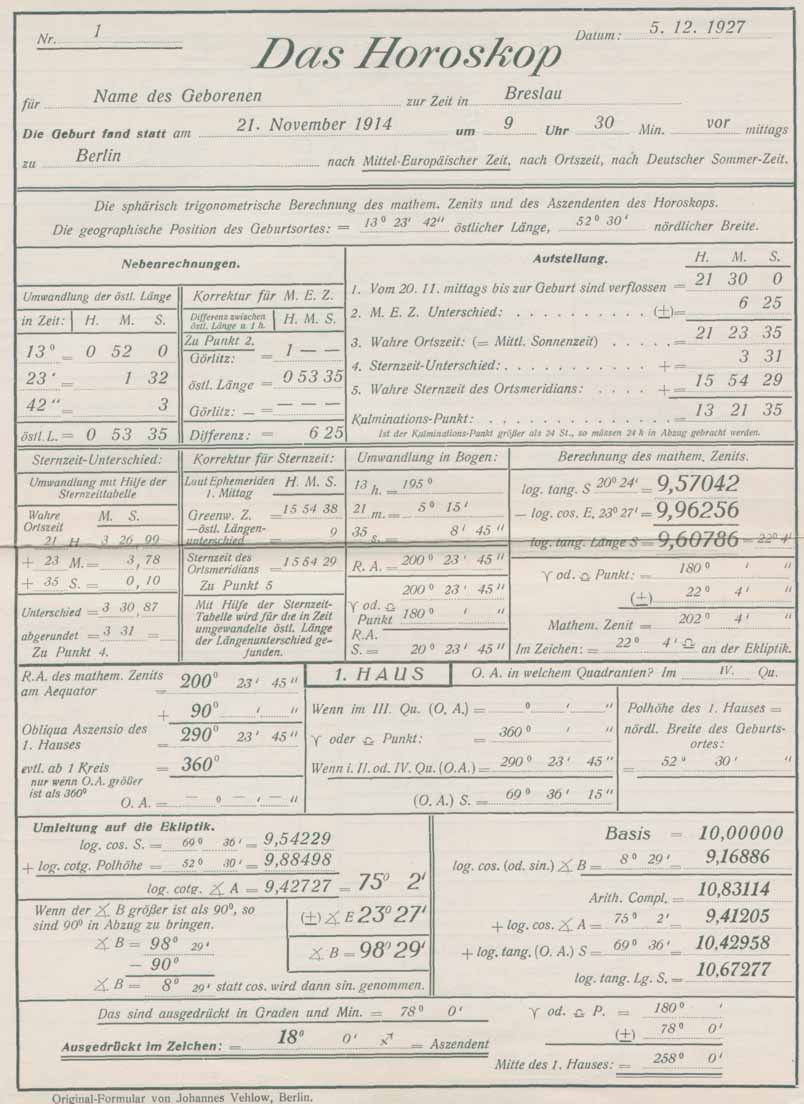 Nr. 1
Datum: 5. 12. 1927
Das Horoskop
für Name des Geborenen zur Zeit in Breslau
Die Geburt fand statt am 21. November 1914 um 9 Uhr 30 Min. vor mittags
zu Berlin nach Mittel-Europäischer Zeit, nach Ortszeit, nach Deutscher Sommer-Zeit.
Die sphärisch trigonometrische Berechnung des mathem. Zenits und des Aszendenten des Horoskops.
Die geographische Position des Geburtsortes: = 13⁰ 23' 42" östlicher Länge, 52⁰ 30' nördlicher Breite.
Nebenrechnungen.
Umwandlung der östl. Länge
in Zeit: H. M. S.
13⁰ = 0 52 0
23' = 1 32
42" = 3
östl. L. = 0 53 35
Korrektur für M. E. Z.
Differenz zwischen östl. Länge u. 1 h. H. M. S.
Zu Punkt 2.
Görlitz: = 1 — —
östl. Länge = 0 53 35
Görlitz: — = — — —
Differenz: = 6 25
Aufstellung. H. M. S.
1. Vom 20. 11. mittags bis zur Geburt sind verflossen = 21 30 0
2. M. E. Z. Unterschied: (±) = 6 25
3. Wahre Ortszeit: (= Mittl. Sonnenzeit) = 21 23 35
4. Sternzeit-Unterschied: + = 3 31
5. Wahre Sternzeit des Ortsmeridians: + = 15 54 29
Kulminations-Punkt: = 13 21 35
Ist der Kulminations-Punkt größer als 24 St., so müssen 24 h in Abzug gebracht werden.
Sternzeit-Unterschied:
Umwandlung mit Hilfe der
Sternzeittabelle
Wahre Ortszeit M. S.
21 H. 3 26,99
+ 23 M. = 3,78
+ 35 S. = 0,10
Unterschied = 3 30,87
abgerundet = 3 31 =
Zu Punkt 4.
Korrektur für Sternzeit:
Laut Ephemeriden 1. Mittag H. M. S.
Greenw. Z. = 15 54 38
—östl. Längen-
unterschied = 9
Sternzeit des
Ortsmeridians = 15 54 29
Zu Punkt 5
Mit Hilfe der Sternzeit-
Tabelle wird für die in Zeit
umgewandelte östl. Länge
der Längenunterschied ge-
funden.
Umwandlung in Bogen:
13 h. = 195⁰
21 m. = 5⁰ 15'
35 s. = 8' 45"
R. A. = 200⁰ 23' 45"
200⁰ 23' 45"
♈ od. ♎
Punkt 180⁰ ' "
R.A.
S. = 20⁰ 23' 45"
Berechnung des mathem. Zenits.
log. tang. S 20⁰ 24' = 9,57042
— log. cos. E, 23⁰ 27' = 9,96256
log. tang. Länge S = 9,60786 = 22⁰ 4'
♈ od. ♎ Punkt: = 180⁰ ' "
(±) 22⁰ 4' "
Mathem. Zenit = 202⁰ 4' "
Im Zeichen: = 22⁰ 4' ♎ an der Ekliptik.
R.A. des mathem. Zenits
am Aequator = 200⁰ 23' 45"
+ 90⁰ ' "
Obliqua Aszensio des
1. Hauses = 290⁰ 23' 45"
evtl. ab 1 Kreis = 360⁰
nur wenn O.A. größer
ist als 360⁰
O. A. = — ⁰ — ' — "
1. HAUS
O. A. in welchem Quadranten? Im IV. Qu.
Wenn im III. Qu. (O, A.) = ⁰ ' "
♈ oder ♎ Punkt: = 360⁰ ' "
Wenn i. II. od. IV. Qu. (O.A.) = 290⁰ 23' 45"
(O. A.) S. = 69⁰ 36' 15"
Polhöhe des 1. Hauses =
nördl. Breite des Geburts-
ortes:
= 52⁰ 30' "
Umleitung auf die Ekliptik.
log. cos. S. = 69⁰ 36' = 9,54229
+ log. cotg. Polhöhe = 52⁰ 30' = 9,88498
log. cotg. ∡ A = 9,42727 = 75⁰ 2'
Wenn der ∡ B größer ist als 90⁰, so
sind 90⁰ in Abzug zu bringen.
(±) ∡ E 23⁰ 27'
∡ B = 98⁰ 29'
∡ B = 98⁰ 29'
— 90⁰
∡ B = 8⁰ 29' statt cos. wird dann sin. genommen.
Basis = 10,00000
log. cos. (od. sin.) ∡ B = 8⁰ 29' = 9,16886
Arith. Compl. = 10,83114
+ log. cos. ∡ A = 75⁰ 2' = 9,41205
+ log. tang. (O. A.) S = 69⁰ 36' = 10,42958
log. tang. Lg. S, = 10,67277
Das sind ausgedrückt in Graden und Min. = 78⁰ 0'
Ausgedrückt im Zeichen: = 18⁰ 0' ♐ = Aszendent
♈ od. ♎ P. = 180⁰ '
(±) 78⁰ 0'
Mitte des 1. Hauses: = 258⁰ 0'
Original-Formular von Johannes Vehlow, Berlin.